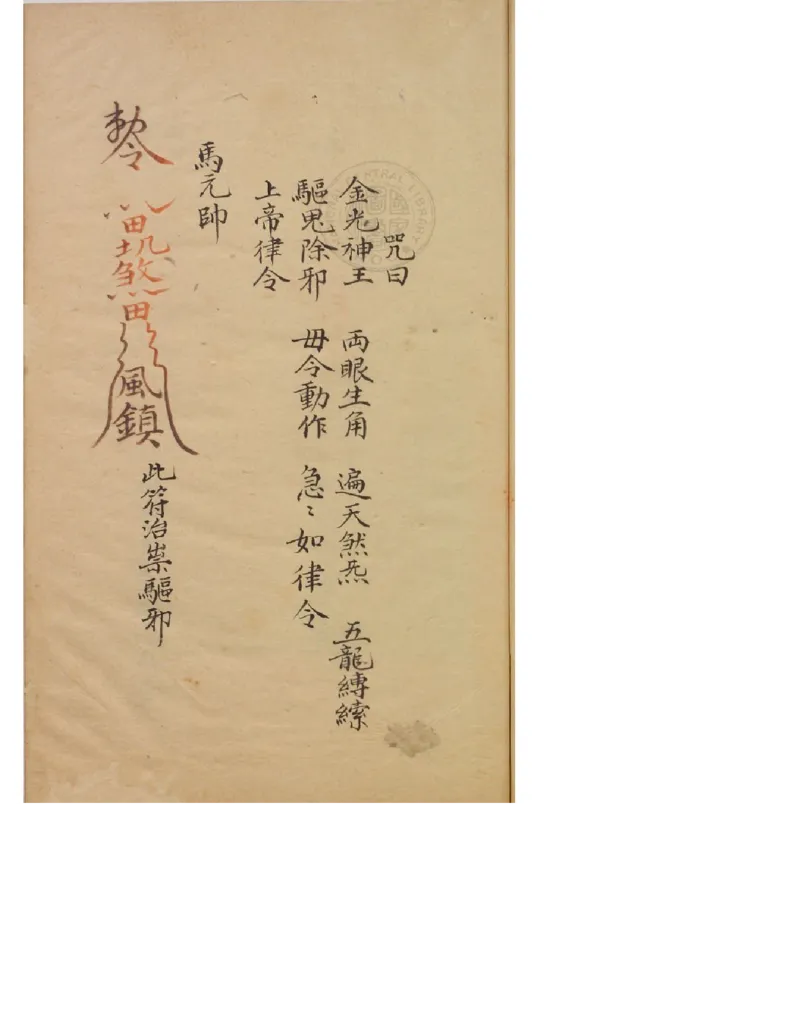 咒曰
金光神王 両眼生角 遍天然炁 五龍縛繠
驅鬼除邪 毋令動作 急〻如律令
上帝律令
馬元帥
勅令
風鎮
此符治祟驅邪
CENTRAL LIBRARY